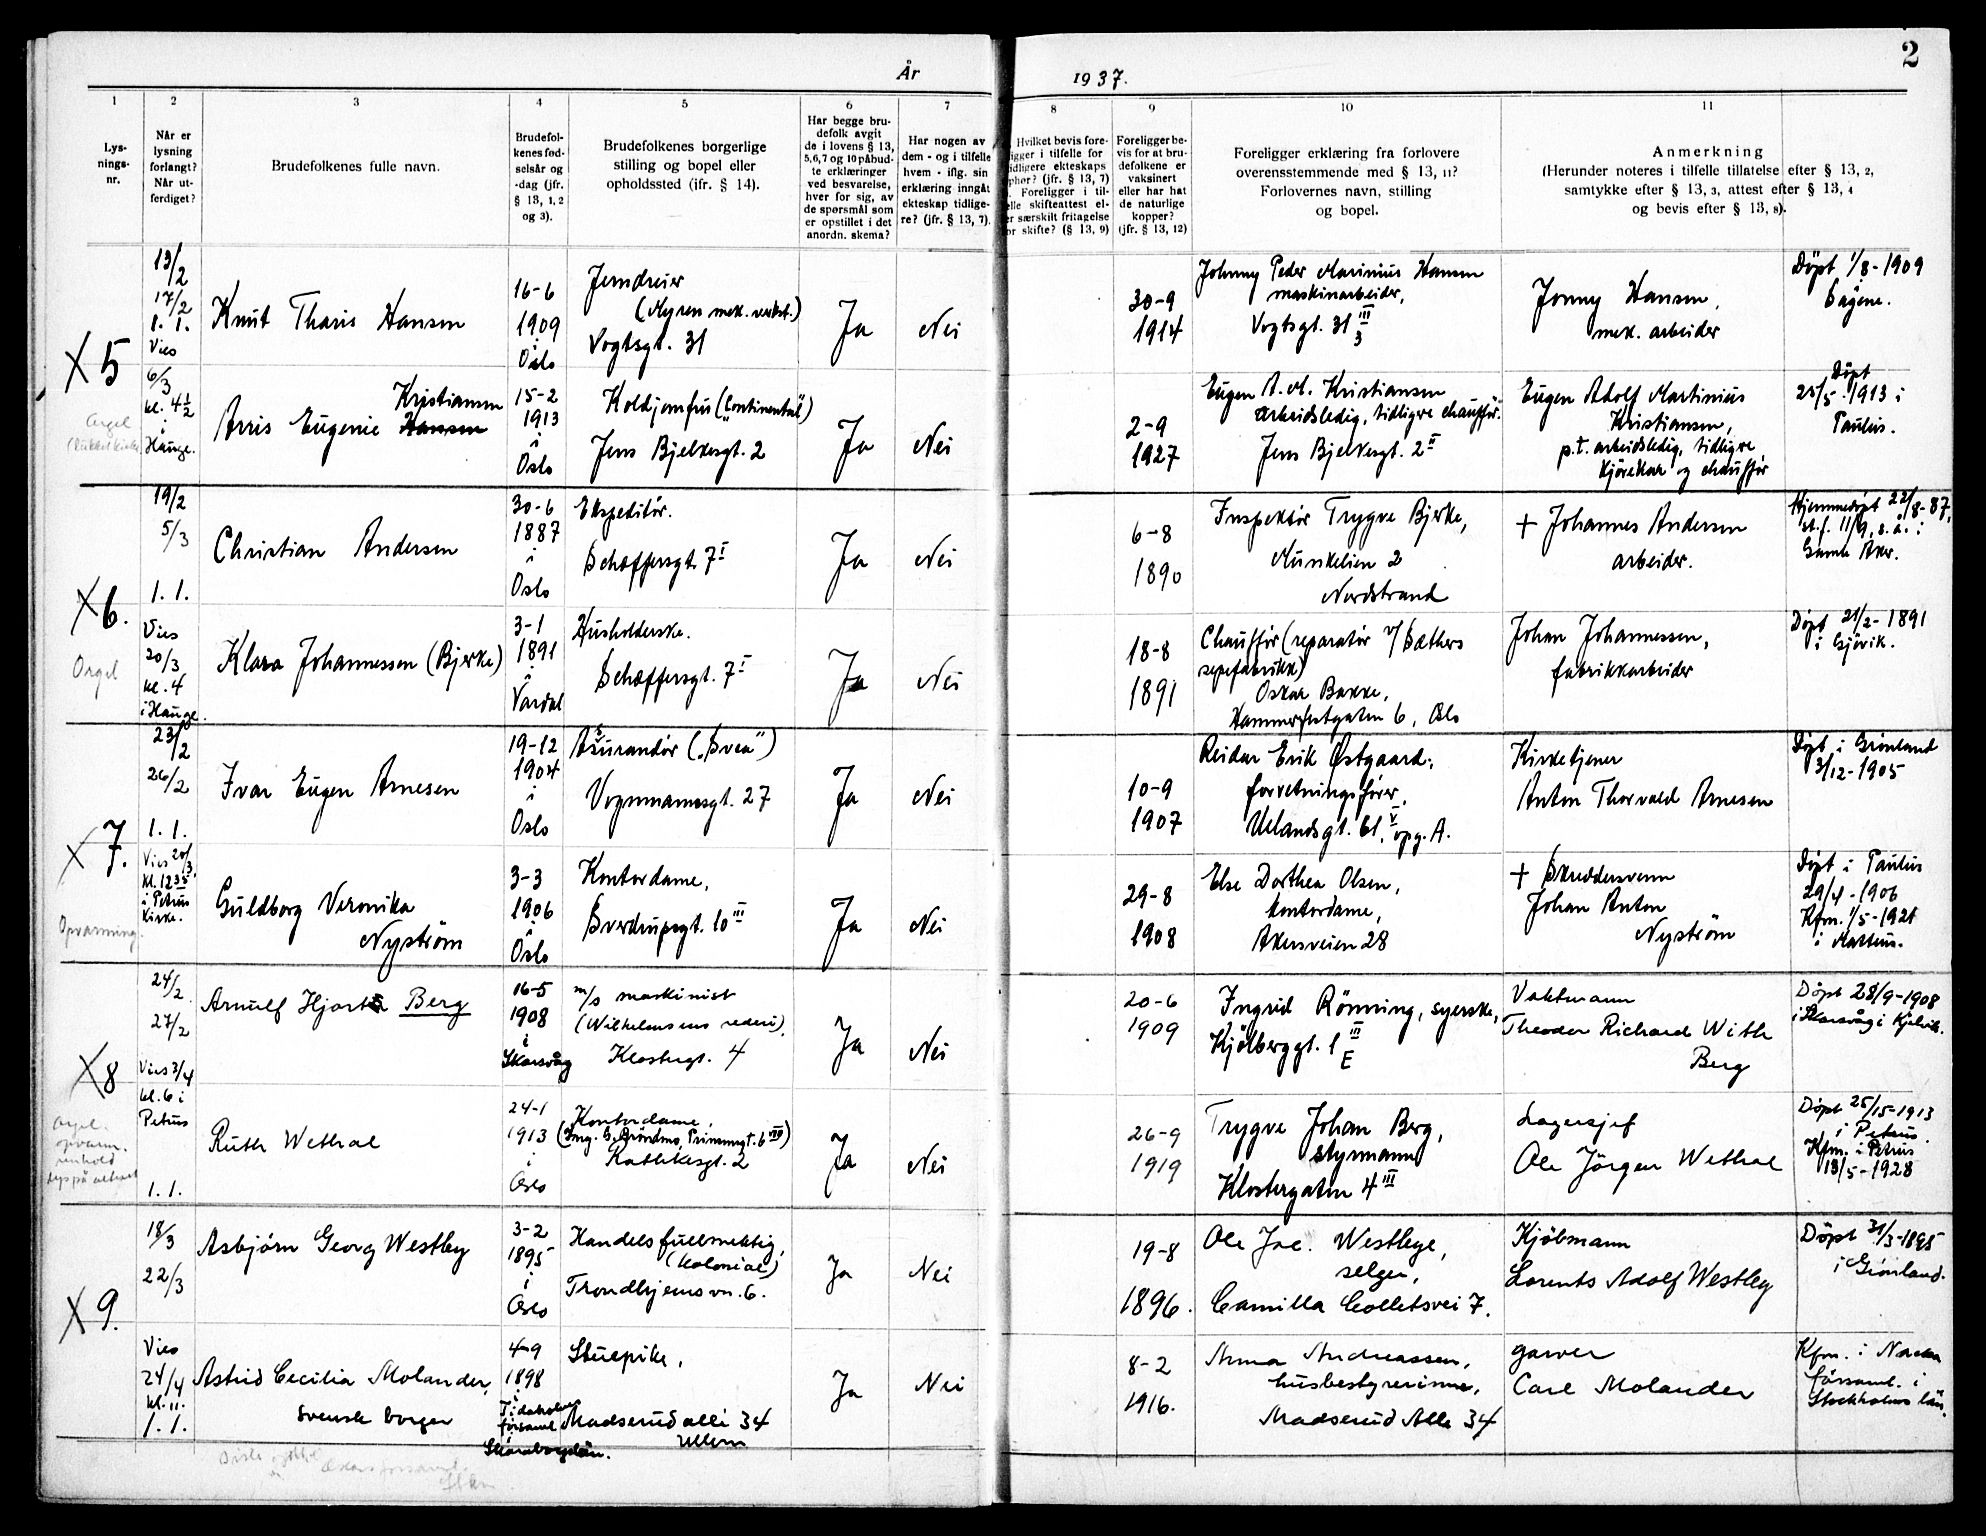 År 1937.
2
1
2
3
4
5
6
7
8
9
10
11
Lys-
nings-
nr.
Når er
lysning
forlangt?
Når ut-
ferdiget?
Brudefolkenes fulle navn.
Brudefol-
kenes fød-
selsår og
-dag (jfr.
§ 13, 1, 2
og 3).
Brudefolkenes borgerlige
stilling og bopel eller
opholdssted (ifr. § 14).
Har begge bru-
defolk avgit
de i lovens § 13,
5,6,7 og 10 påbud-
te erklæringer
ved besvarelse,
hver for sig, av
de spørsmål som
er opstillet i det
anordn. skema?
Har nogen av
dem - og i tilfelle
hvem - iflg. sin
erklæring inngåt
ekteskap tidlige-
re? (jfr. § 13, 7).
Hvilket bevis fore-
ligger i tilfelle for
tidligere ekteskaps
ophør? (jfr. § 13, 7)
Foreligger i til-
felle skifteattest el-
ler særskilt fritagelse
for skifte? (§ 13, 9)
Foreligger be-
vis for at bru-
defolkene er
vaksinert
eller har hat
de naturlige
kopper?
(jfr. § 13, 12)
Foreligger erklæring fra forlovere
overensstemmende med § 13, 11?
Forlovernes navn, stilling
og bopel.
Anmerkning
(Herunder noteres i tilfelle tillatelse efter § 13, 2,
samtykke efter § 13, 3, attest efter § 13, 4
og bevis efter § 13, 8).
X 5
Orgel
13/2
17/2
1. 1.
Vies
6/3
kl. 4 1/2
i
Hauge.
Knut Tharis Hansen
16-6
1909
i
Oslo
Jerndreier
(Myren mek. verkst.)
Vogtsgt. 31
Ja
Nei
30-9
1914
Johnny Peder Marinius Hansen
maskinarbeider,
Vogtsgt. 31 III
3
Jonny Hansen,
mek. arbeider
Döpt 1/8-1909
Sagene.
Kristiansen
Arris Eugenie Hansen
15-2
1913
i
Oslo
Koldjomfru ("Continental")
Jens Bjelkesgt. 2
Ja
Nei
2-9
1927
Eugen A. M. Kristiansen
arbeidsledig, tidligre chauffør.
Jens Bjelkesgt. 2 II
Eugen Adolf Martinius
Kristiansen,
p.t. arbeidsledig, tidligre
kjörekar og chauffør
Döpt
25/5-1913 i
Paulus.
X 6.
Orgel
19/2
5/3
1. 1.
Vies
20/3
kl. 4
i Hauge.
Christian Andersen
30-6
1887
i
Oslo
Ekspeditör.
Schæffersgt. 7 I
Ja
Nei
6-8
1890
Inspektör Trygve Bjerke,
Munkelien 2
Nordstrand
+ Johannes Andersen
arbeider.
Hjemmedöpt 22/8-87,
st.f. 11/9, s.å. i
Gamle Aker.
Klara Johannessen (Bjerke)
3-1
1891
i
Vardal
Husholderske.
Schæffersgt. 7 I
Ja
Nei
18-8
1891
Chauffør (reparatör v/ Sæthers
sepefabrikk)
Oskar Bakke,
Hammerfestgaten 6, Oslo
Johan Johannessen,
fabrikkarbeider
Döpt 21/2-1891
i Gjövik.
X 7.
Opvarming.
23/2
26/2
1. 1.
Vies 20/3
kl. 12 35
i Petrus
kirke.
Ivar Eugen Arnesen
19-12
1904
i
Oslo
Assurandör ("Svea")
Vognmannsgt. 27
Ja
Nei
10-9
1907
Reidar Erik Østgaard,
forretningsfører,
Uelandsgt. 61 V, opg. A.
Kirketjener
Anton Thorvald Arnesen
Döpt i Grönland
3/12-1905
Guldborg Veronika
Nyström
3-3
1906
i
Oslo
Kontordame,
Sverdrupsgt. 10 III
Ja
Nei
29-8
1908
Else Dorthea Olsen,
kontordame,
Akersveien 28
+ Skreddersvenn
Johan Anton
Nyström
Döpt i Paulus
29/4-1906
Kfm. 1/5-1921
i Matteus.
X 8
Orgel.
opvarm.
24/2
27/2
Vies 3/4
kl. 6 i
Petrus
1. 1.
Arnulf Hjorth Berg
16-5
1908
i
Skarsvåg
m/s maskinist
(Wilhelmsens rederi),
Klostergt. 4
Ja
Nei
20-6
1909
Ingrid Rönning, syerske,
Kjölberggt. 1 III
E
Vaktmann
Theodor Richard With
Berg
Döpt 28/9-1908
i Skarsvåg i Kjelvik.
Ruth Wethal
24-1
1913
i
Oslo
Kontordame,
Ja
Nei
26-9
1919
Trygve Johan Berg,
styrmann
Klostergaten 4 III
Lagersjef
Ole Jörgen Wethal
Döpt 25/15-1913
i Petrus.
Kfm. i Petrus
13/5-1928
X 9.
18/3
22/3
Vies
24/4
kl. 11.
1. 1.
Asbjörn Georg Westby
3-2
1895
i
Oslo
Handelsfullmektig,
(Kolonial)
Trondhjemsvn. 6.
Ja
Nei
19-8
1896.
Ole Jac. Westbye,
selger,
Camilla Colletsvei 7.
Kjöbmann
Lorents Adolf Westby
Döpt 31/3-1895
i Grönland.
Astrid Cecilia Molander,
svensk borger
4-9
1898
i
församl.
Skaraborgslän.
Stuepike,
Madserud allé 34
Ullern
Ja
Nei
8-2
1916.
Anna Andreassen,
husbestyrerinne,
Madserud Allé 34
garver
Carl Molander
Kfm. i Nacka
församl. i
Stockholms län.